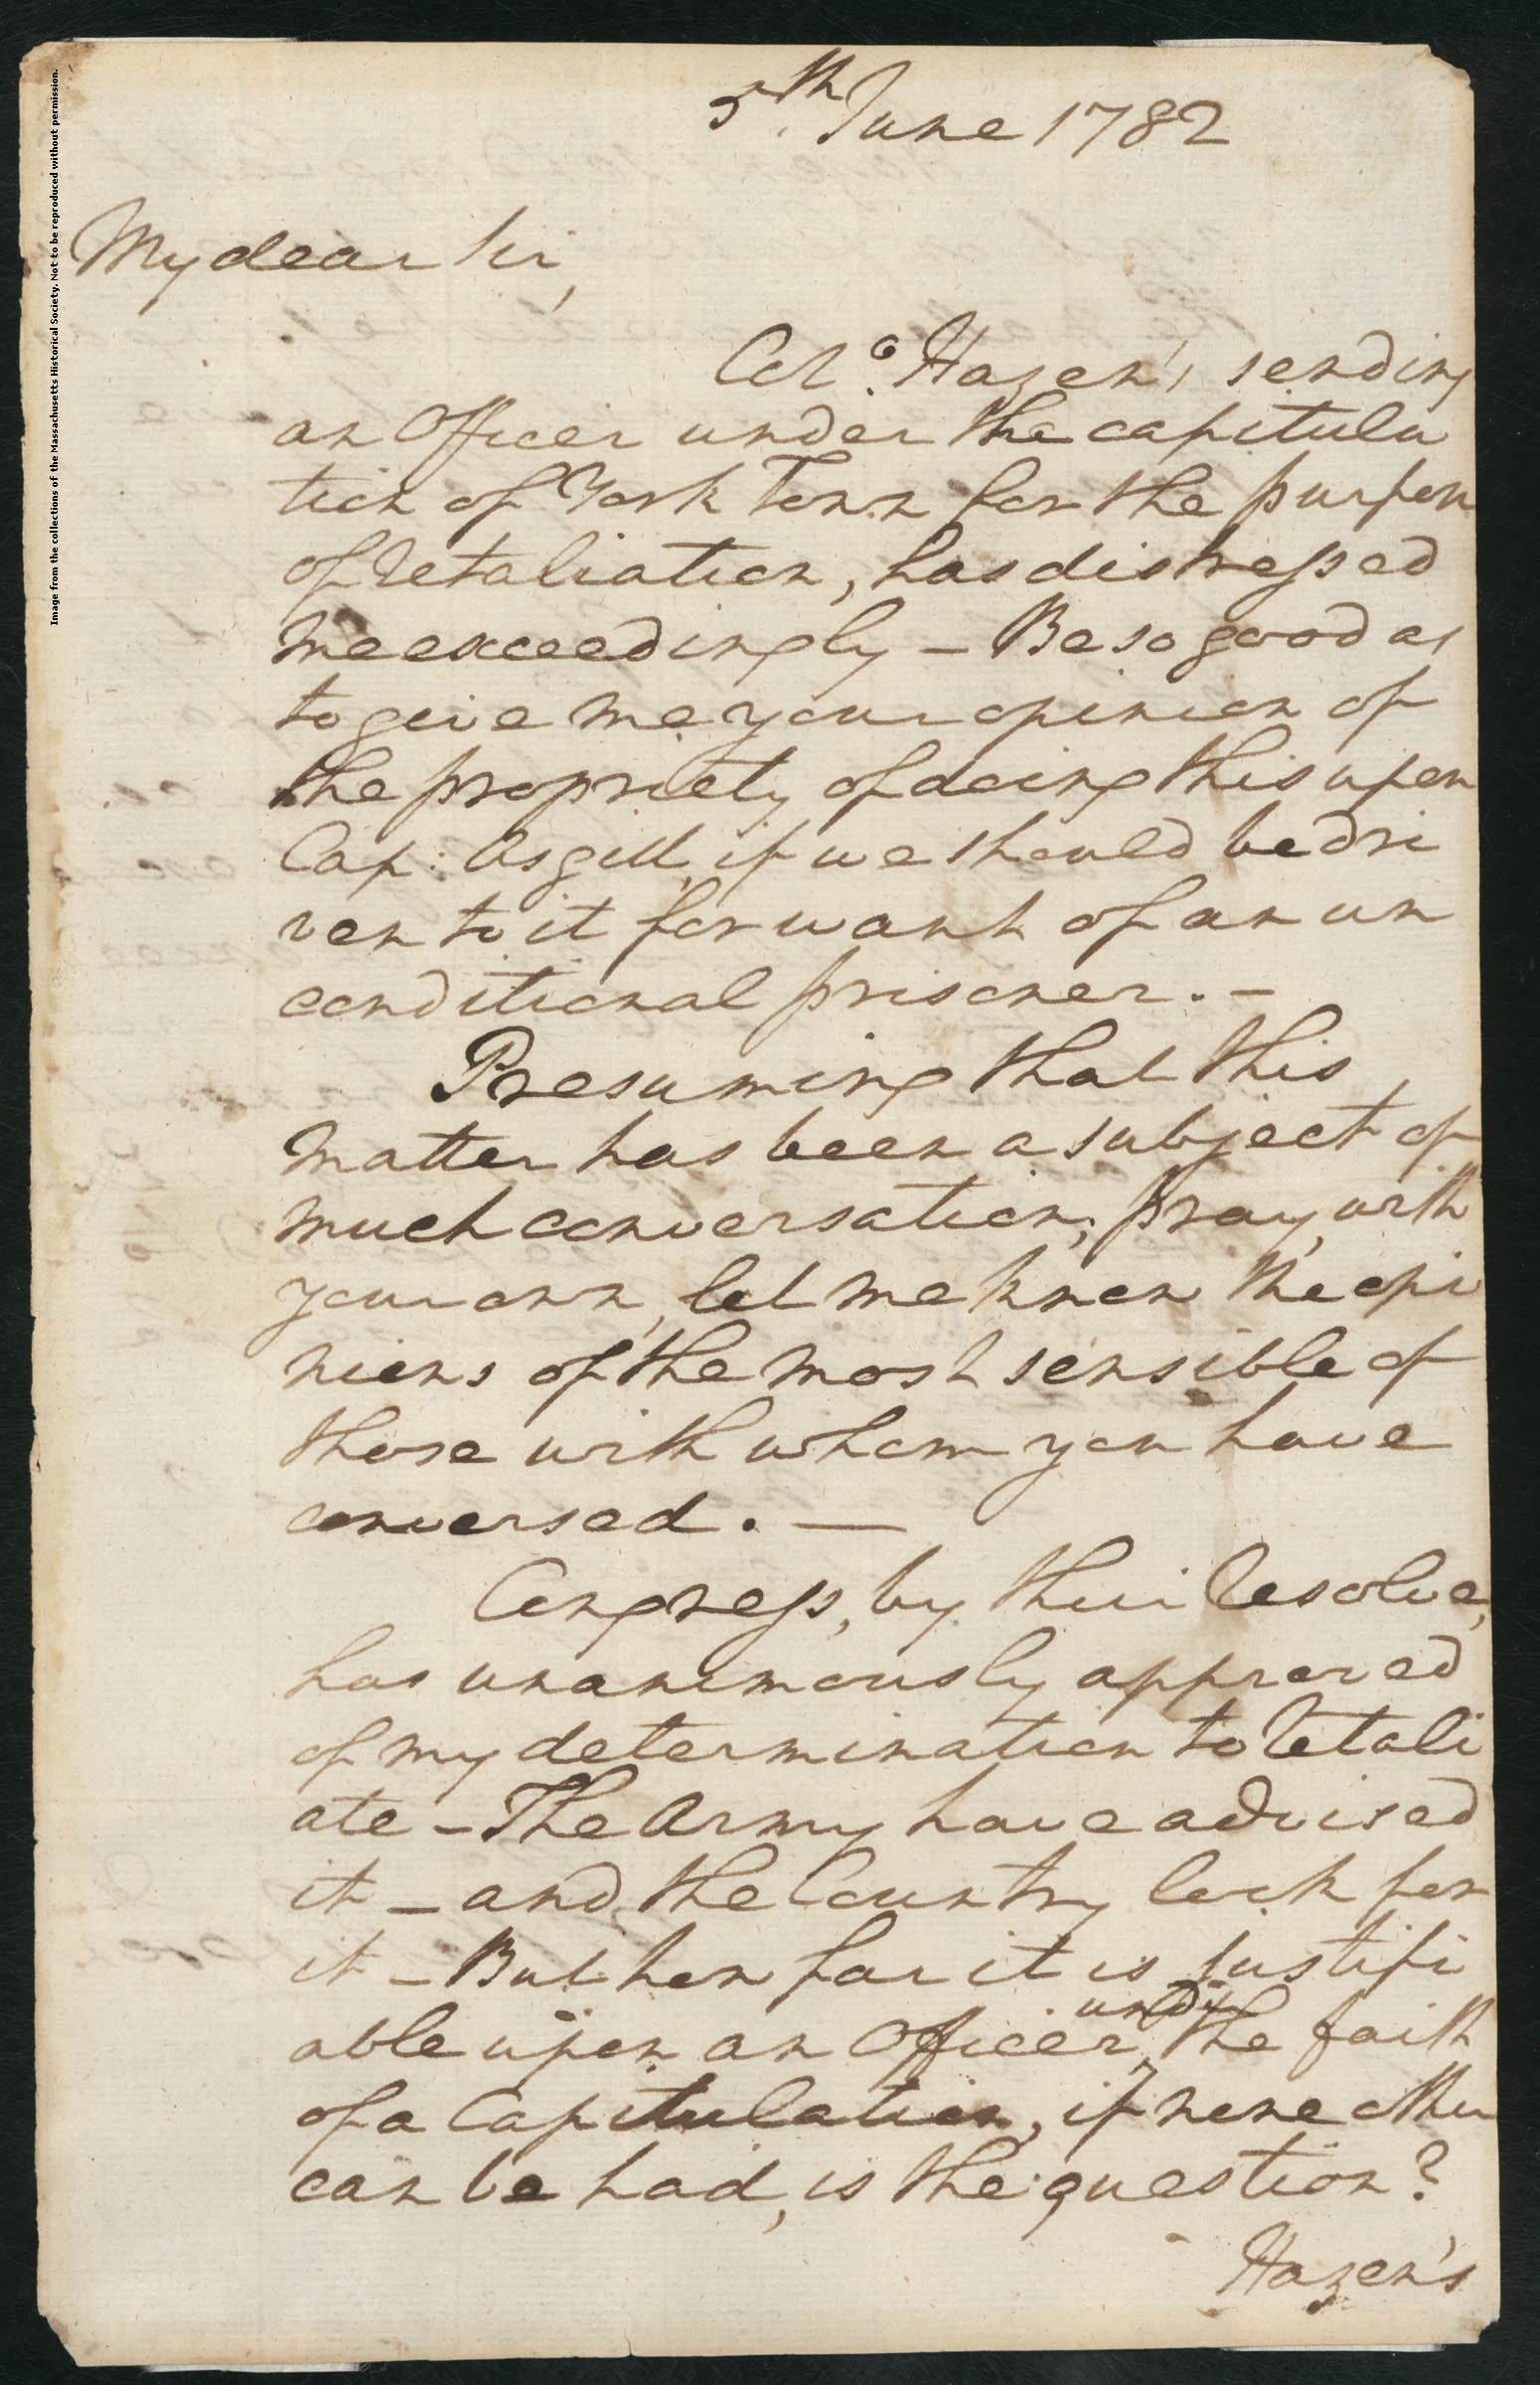 Image from the collections of the Massachusetts Historical Society. Not to be reproduced without permission.
5th. June 1782
My dear Sir,
Colo. Hazen's sending
an Officer under the capitula
tion of York Town for the purpose
of retaliation, has distressed
me exceedingly – Be so good as
to give me your opinion of
the propriety of doing this upon
Cap: Asgill, if we should be dri
ven to it for want of an un
conditional prisoner. –
Presuming that this
matter has been a subject of
much conversation; pray, with
your own, let me know the opi
nions of the most sensible of
those with whom you have
conversed. —
Congress, by their Resolve,
has unanimously approved
of my determination to retali
ate – The Army have advised
it – and the Country look for
it – But how far it is justifi
able upon an Officer under the faith
of a Capitulation, if none other
can be had, is the question?
Hazen's